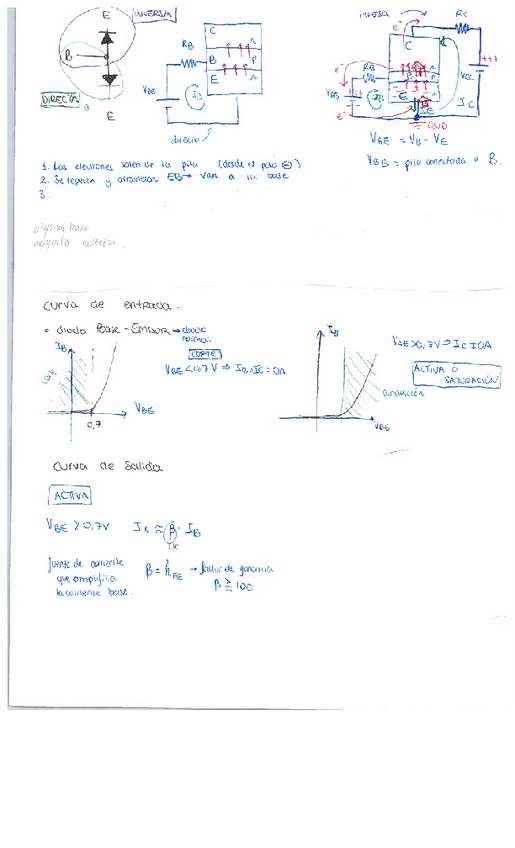 E
INVERSA
B
DIRECTA
E
C
RB
B
P
E
n
VBE
IB
directa
inversa
e-
RC
C
RB
B
E
VCC
+++
IB
IC
IE
e-
GND
VBE = VB - VE
VBB = pila conectada a B.
1. Los electrones salen de la pila (desde el polo ⊖)
2. Se repelen y atraviesan EB → van a la base
3.
Curva de entrada.
• diodo Base - Emisor → diodo normal
IB
CORTE
VBE < 0,7 V ⇒ IB = IC = 0A
VBE
0,7
IB
VBE > 0,7V ⇒ IC ≠ 0A
ACTIVA O
SATURACIÓN
conducción
VBE
Curva de Salida
ACTIVA
VBE ≥ 0,7V IC ≈ β · IB
fuente de corriente
que amplifica
la corriente base.
β = hFE → factor de ganancia
β ≥ 100